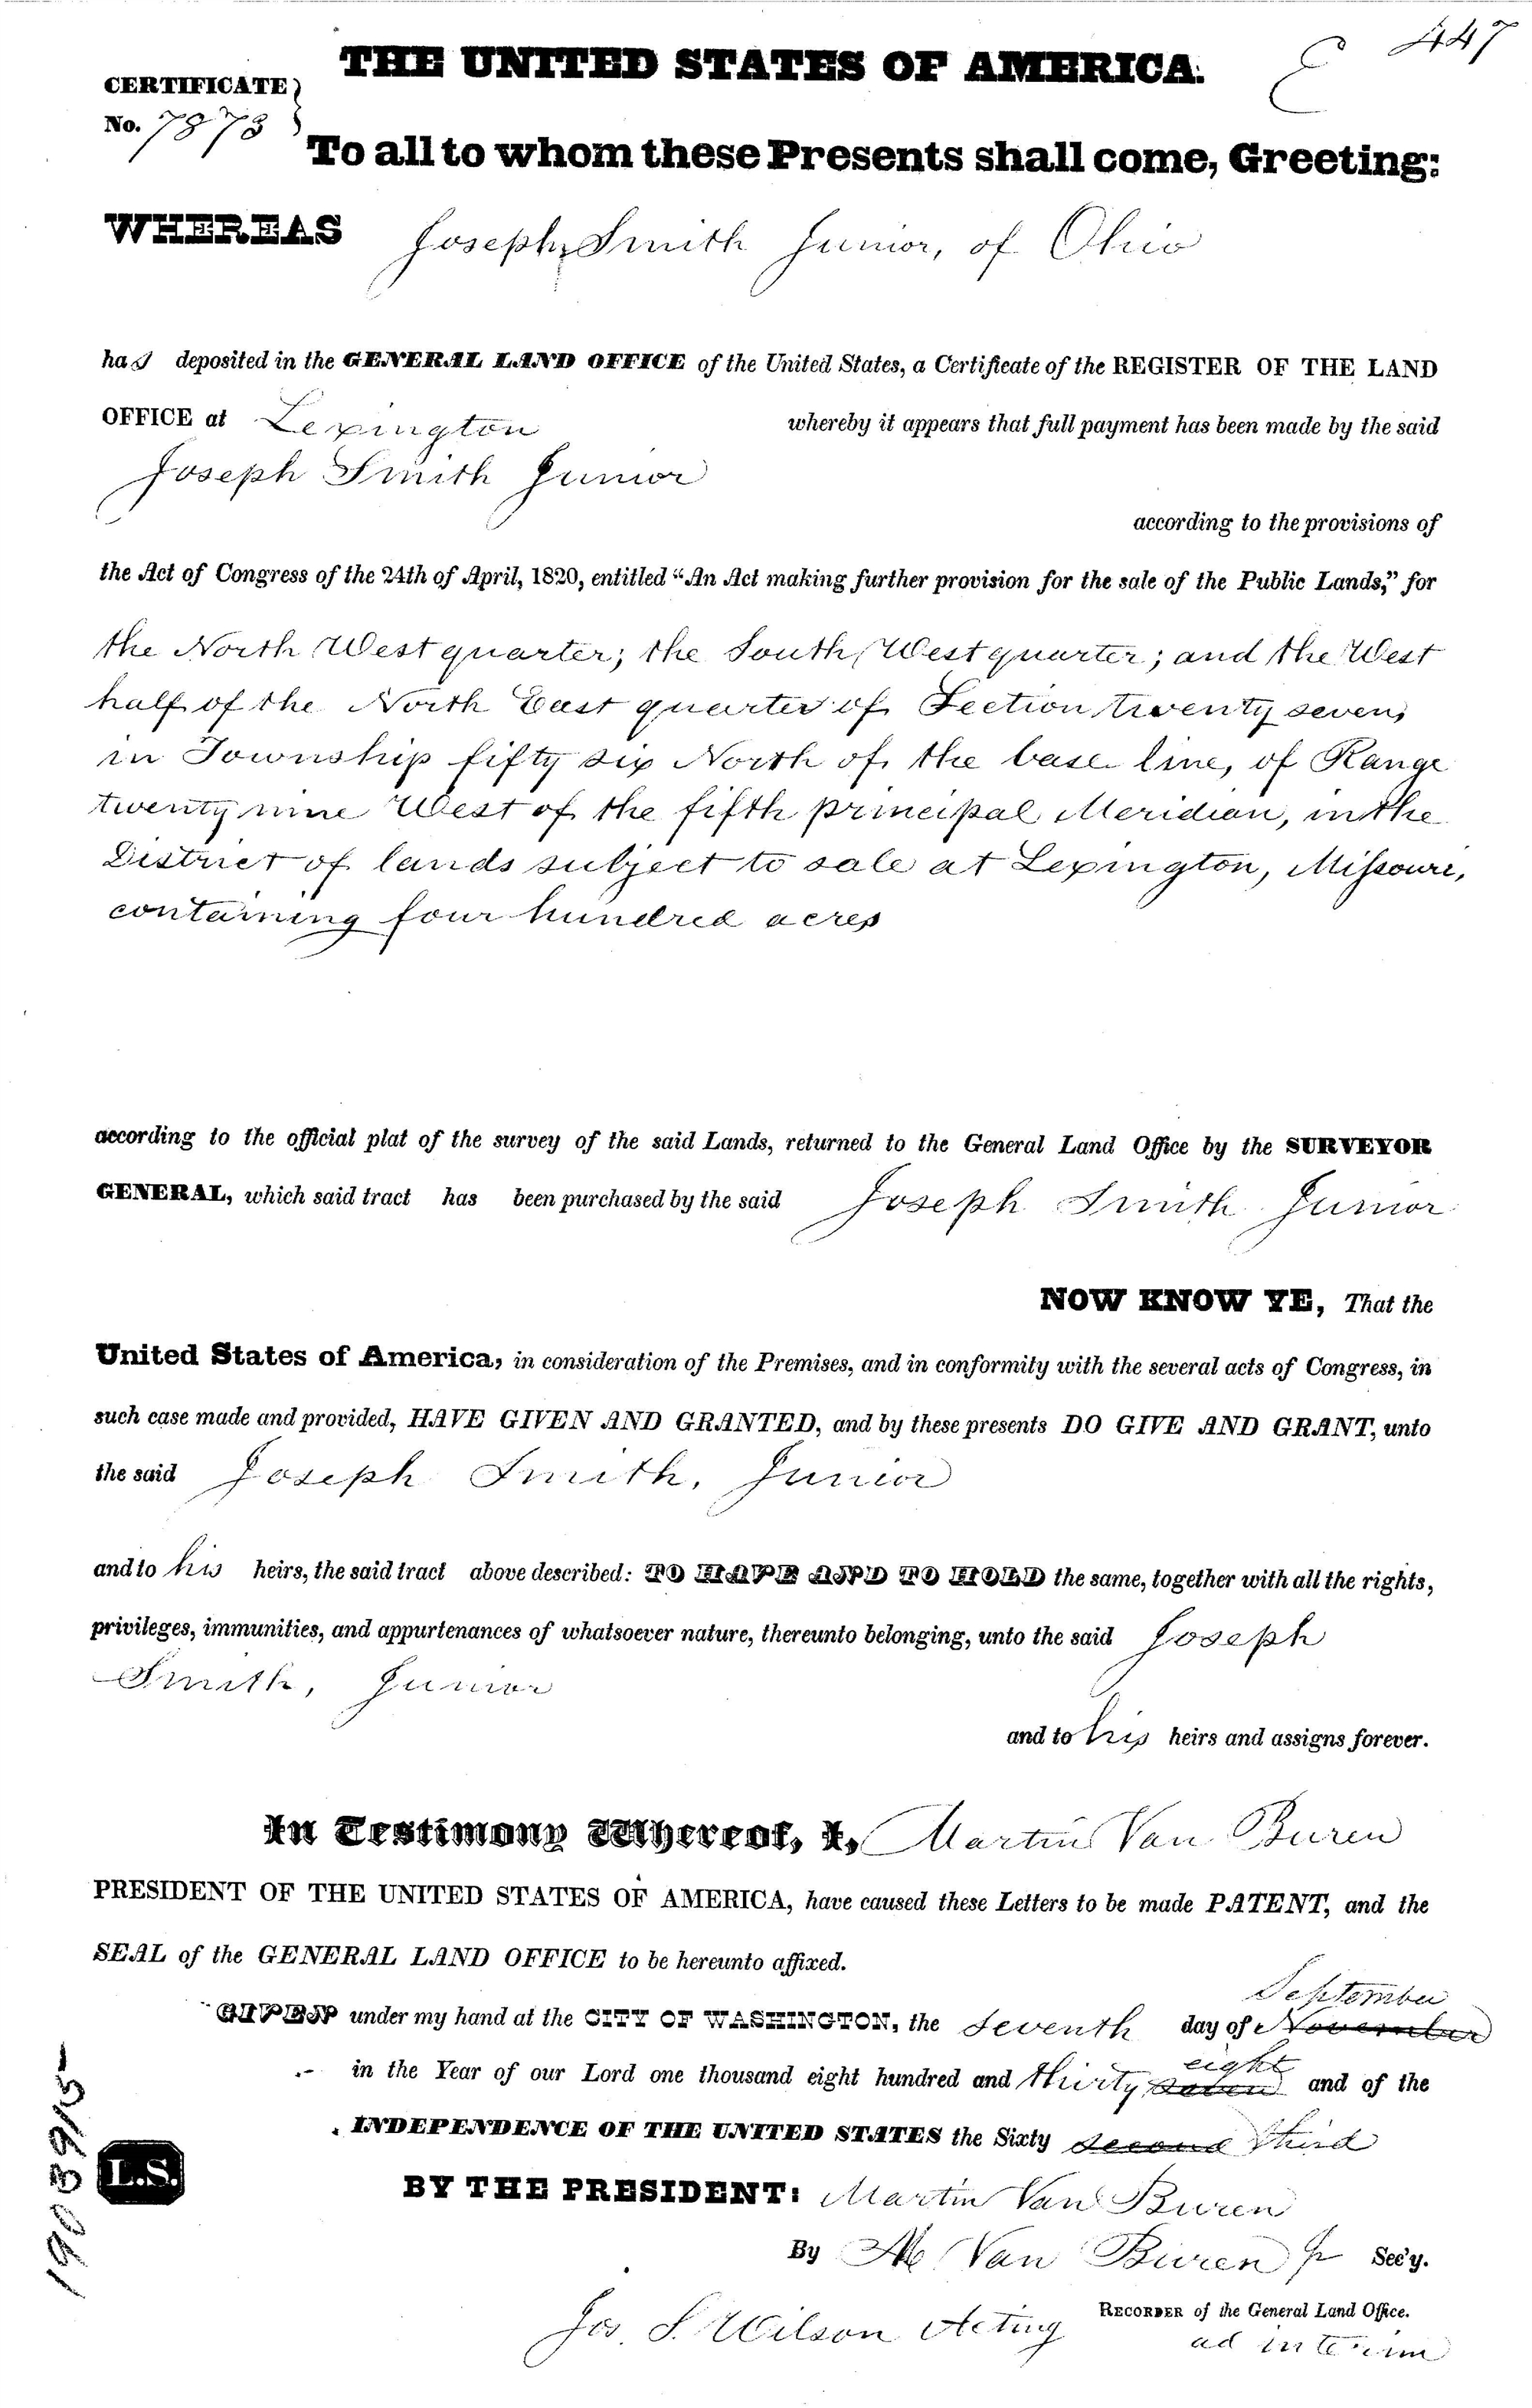 447
E
THE UNITED STATES OF AMERICA.
CERTIFICATE
No. 7873
To all to whom these Presents shall come, Greeting:
WHEREAS Joseph Smith Junior, of Ohio
has deposited in the GENERAL LAND OFFICE of the United States, a Certificate of the REGISTER OF THE LAND
OFFICE at Lexington whereby it appears that full payment has been made by the said
Joseph Smith Junior
according to the provisions of
the Act of Congress of the 24th of April, 1820, entitled "An Act making further provision for the sale of the Public Lands," for
the North West quarter; the South West quarter; and the West
half of the North East quarter of Section twenty seven,
in Township fifty six North of the base line, of Range
twenty nine West of the fifth principal Meridian, in the
District of lands subject to sale at Lexington, Missouri,
containing four hundred acres
according to the official plat of the survey of the said Lands, returned to the General Land Office by the SURVEYOR
GENERAL, which said tract has been purchased by the said Joseph Smith Junior
NOW KNOW YE, That the
United States of America, in consideration of the Premises, and in conformity with the several acts of Congress, in
such case made and provided, HAVE GIVEN AND GRANTED, and by these presents DO GIVE AND GRANT, unto
the said Joseph Smith, Junior
and to his heirs, the said tract above described: TO HAVE AND TO HOLD the same, together with all the rights,
privileges, immunities, and appurtenances of whatsoever nature, thereunto belonging, unto the said Joseph
Smith, Junior
and to his heirs and assigns forever.
In Testimony Whereof, I, Martin Van Buren
PRESIDENT OF THE UNITED STATES OF AMERICA, have caused these Letters to be made PATENT, and the
SEAL of the GENERAL LAND OFFICE to be hereunto affixed.
September
GIVEN under my hand at the CITY OF WASHINGTON, the seventh day of November
eight
in the Year of our Lord one thousand eight hundred and thirty seven and of the
INDEPENDENCE OF THE UNITED STATES the Sixty second third
L.S.
190 3915
BY THE PRESIDENT: Martin Van Buren
By M Van Buren Jr Sec'y.
Jos. S. Wilson Acting RECORDER of the General Land Office.
ad interim